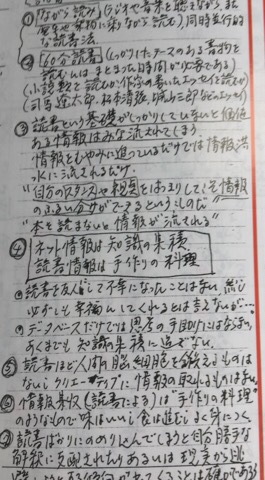 ①「ながら読み」(ラジオで音楽を聴きながら、また
電車や乗物に乗りながら読む)、同時並行的
な読書法
②「60分読書」(しっかりしたテーマのある書物を
読むにはまとまった時間が必要である)
(小説類を読むより作家の書いたエッセイを読む)
(司馬遼太郎、松本清張、城山三郎などのエッセイ)
③読書という基礎がしっかりしていないと価値
ある情報はみな流されてしまう。
情報をもやみに追っているだけでは情報洪
水に流されるだけ
"自分のスタンスや視点をはっきりしてこそ情報
のふるい分けができるというものだ"
"本を読まないと情報が流れる"
④ネット情報は知識の集積
読書情報は手作りの料理
読書を友人として不幸になったことはない。然し
必ずしも幸福にしてくれるとは言えないが…
データベースだけでは思考の手助けにはならない。
あくまでも知識の集積に過ぎない。
⑤読書ほど人間の脳細胞を鍛えるものは
ないしクリエーティブに情報の取れるものはない。
⑥情報集収(読書による)は"手作りの料理"
のようなもので味はいいし食は進むしよく身につく。
⑦読書ばかりにのめり込んでしまうと自分勝手な
解釈に支配されたりあるいは現実から逃